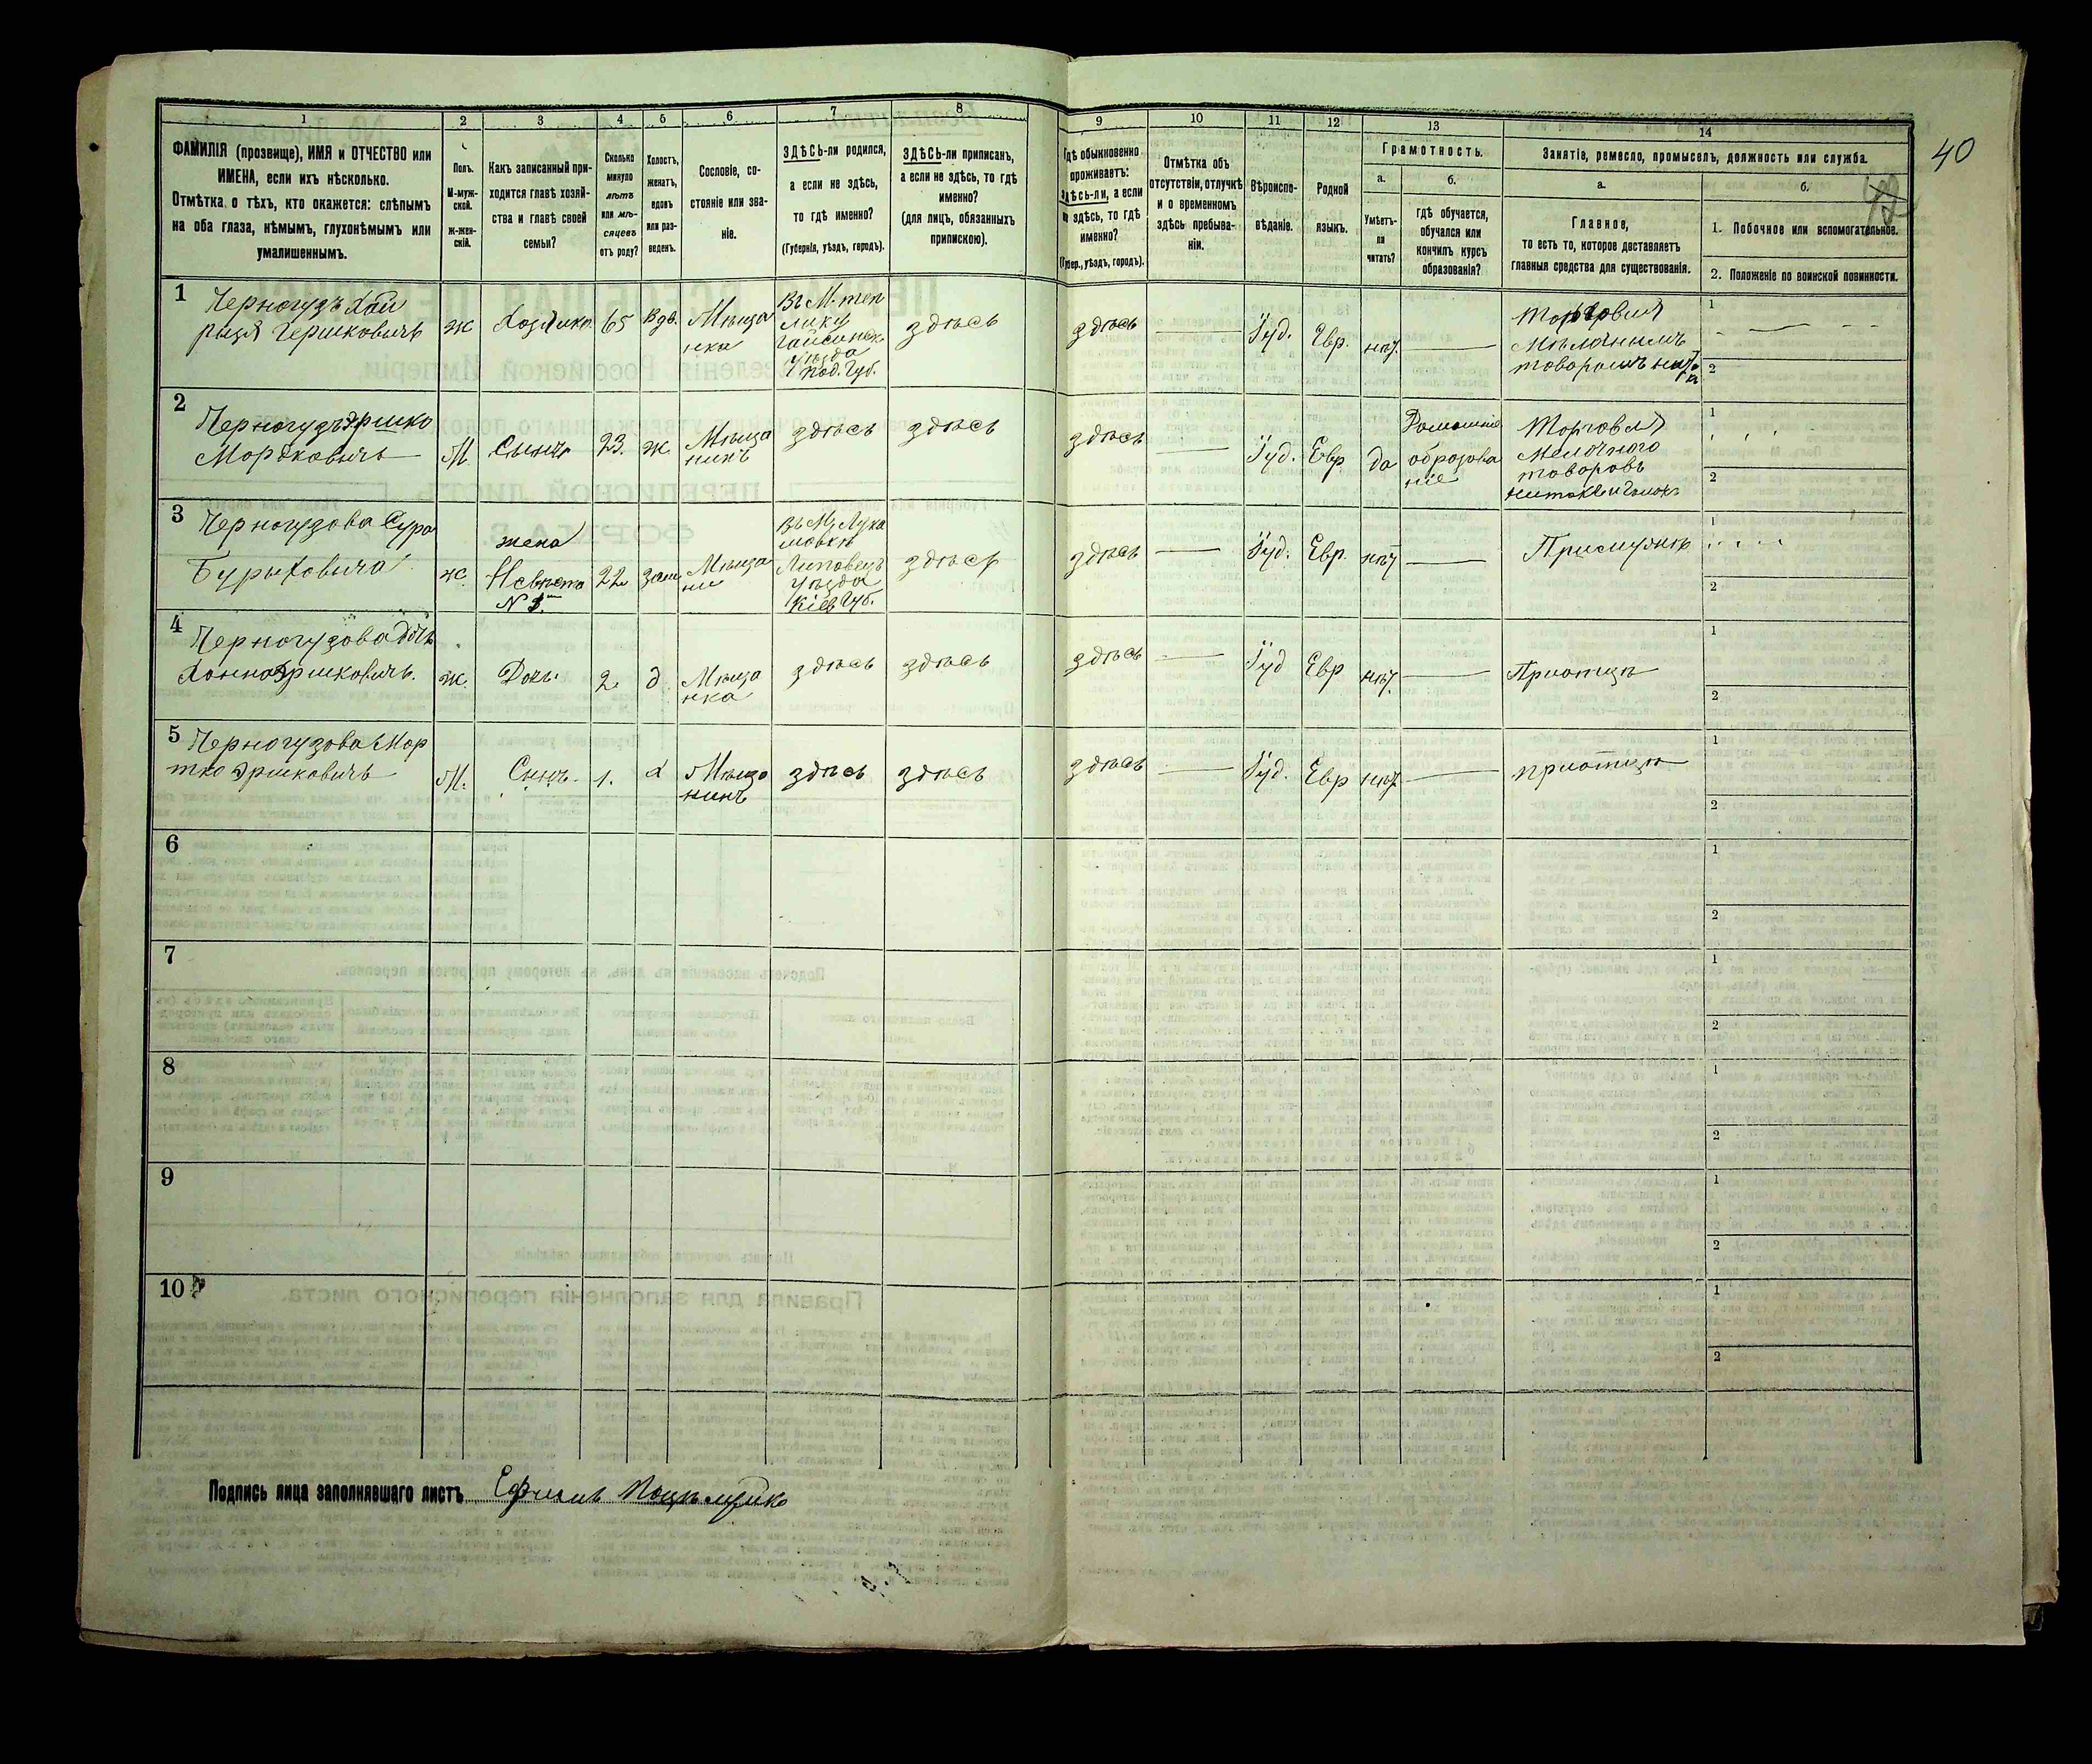 40
1
2
3
4
5
6
7
8
9
10
11
12
13
14
ФАМИЛІЯ (прозвище), ИМЯ и ОТЧЕСТВО или
ИМЕНА, если ихъ нѣсколько.
Отмѣтка о тѣхъ, кто окажется: слѣпымъ
на оба глаза, нѣмымъ, глухонѣмымъ или
умалишеннымъ.
Полъ.
М-муж-
ской.
Ж-жен-
скій.
Какъ записанный при-
ходится главѣ хозяй-
ства и главѣ своей
семьи?
Сколько
минуло
лѣтъ
или мѣ-
сяцевъ
отъ роду?
Холостъ,
женатъ,
вдовъ
или раз-
веденъ.
Сословіе, со-
стояніе или зва-
ніе.
ЗДѢСЬ-ли родился,
а если не здѣсь,
то гдѣ именно?
(Губернія, уѣздъ, городъ).
ЗДѢСЬ-ли приписанъ,
а если не здѣсь, то гдѣ
именно?
(для лицъ, обязанныхъ
припискою).
Гдѣ обыкновенно
проживаетъ:
здѣсь-ли, а если
не здѣсь, то гдѣ
именно?
(Губер., уѣздъ, городъ).
Отмѣтка объ
отсутствіи, отлучкѣ
и о временномъ
здѣсь пребыва-
ніи.
Вѣроиспо-
вѣданіе.
Родной
языкъ.
Грамотность.
а.
Умѣетъ-
ли
читать?
б.
гдѣ обучается,
обучался или
кончилъ курсъ
образованія?
Занятіе, ремесло, промыселъ, должность или служба.
а.
Главное,
то есть то, которое доставляетъ
главныя средства для существованія.
б.
1. Побочное или вспомогательное.
2. Положеніе по воинской повинности.
1
Черногузъ Хай
рыця Гершковичъ
ж
Хозяика
65
Вдв.
Мѣща
нка
Въ М. теп
лику
Гайсинск
уѣзда
Под. Губ.
здѣсь
здѣсь
Іуд.
Евр.
нѣт.
Торговля
Мѣлочнимъ
товаромъ
1
2
2
Черногузъ Эршко
Мордковичъ
М.
Сынъ
23.
ж.
Мѣща
нинъ
здѣсь
здѣсь
здѣсь
Іуд.
Евр
да
Домашнѣе
образова
ніе
Торговля
Мелочного
товаровъ
1
2
3
Черногузова Сура
Бурыховича
ж.
жена
N
22
зам
Мѣща
ни
Въ М. Лука
шовкѣ
Липовецъ
уѣзда
Кіев Губ.
здѣсь
здѣсь
Іуд.
Евр.
нѣт
При мужѣ
1
2
4
Черногузова дочь
Ханна Эршковичъ.
ж.
Дочь.
2.
д.
Мѣща
нка
здѣсь
здѣсь
здѣсь
Іуд
Евр
нѣт.
При отцѣ
1
2
5
Черногузова Мор
тко Эршковичъ
М.
Сынъ.
1.
Мѣща
нинъ
здѣсь
здѣсь
здѣсь
Іуд.
Евр
нѣт
при отцѣ
1
2
6
1
2
7
1
2
8
1
2
9
1
2
10
1
2
Подпись лица заполнявшаго листъ Ефимъ